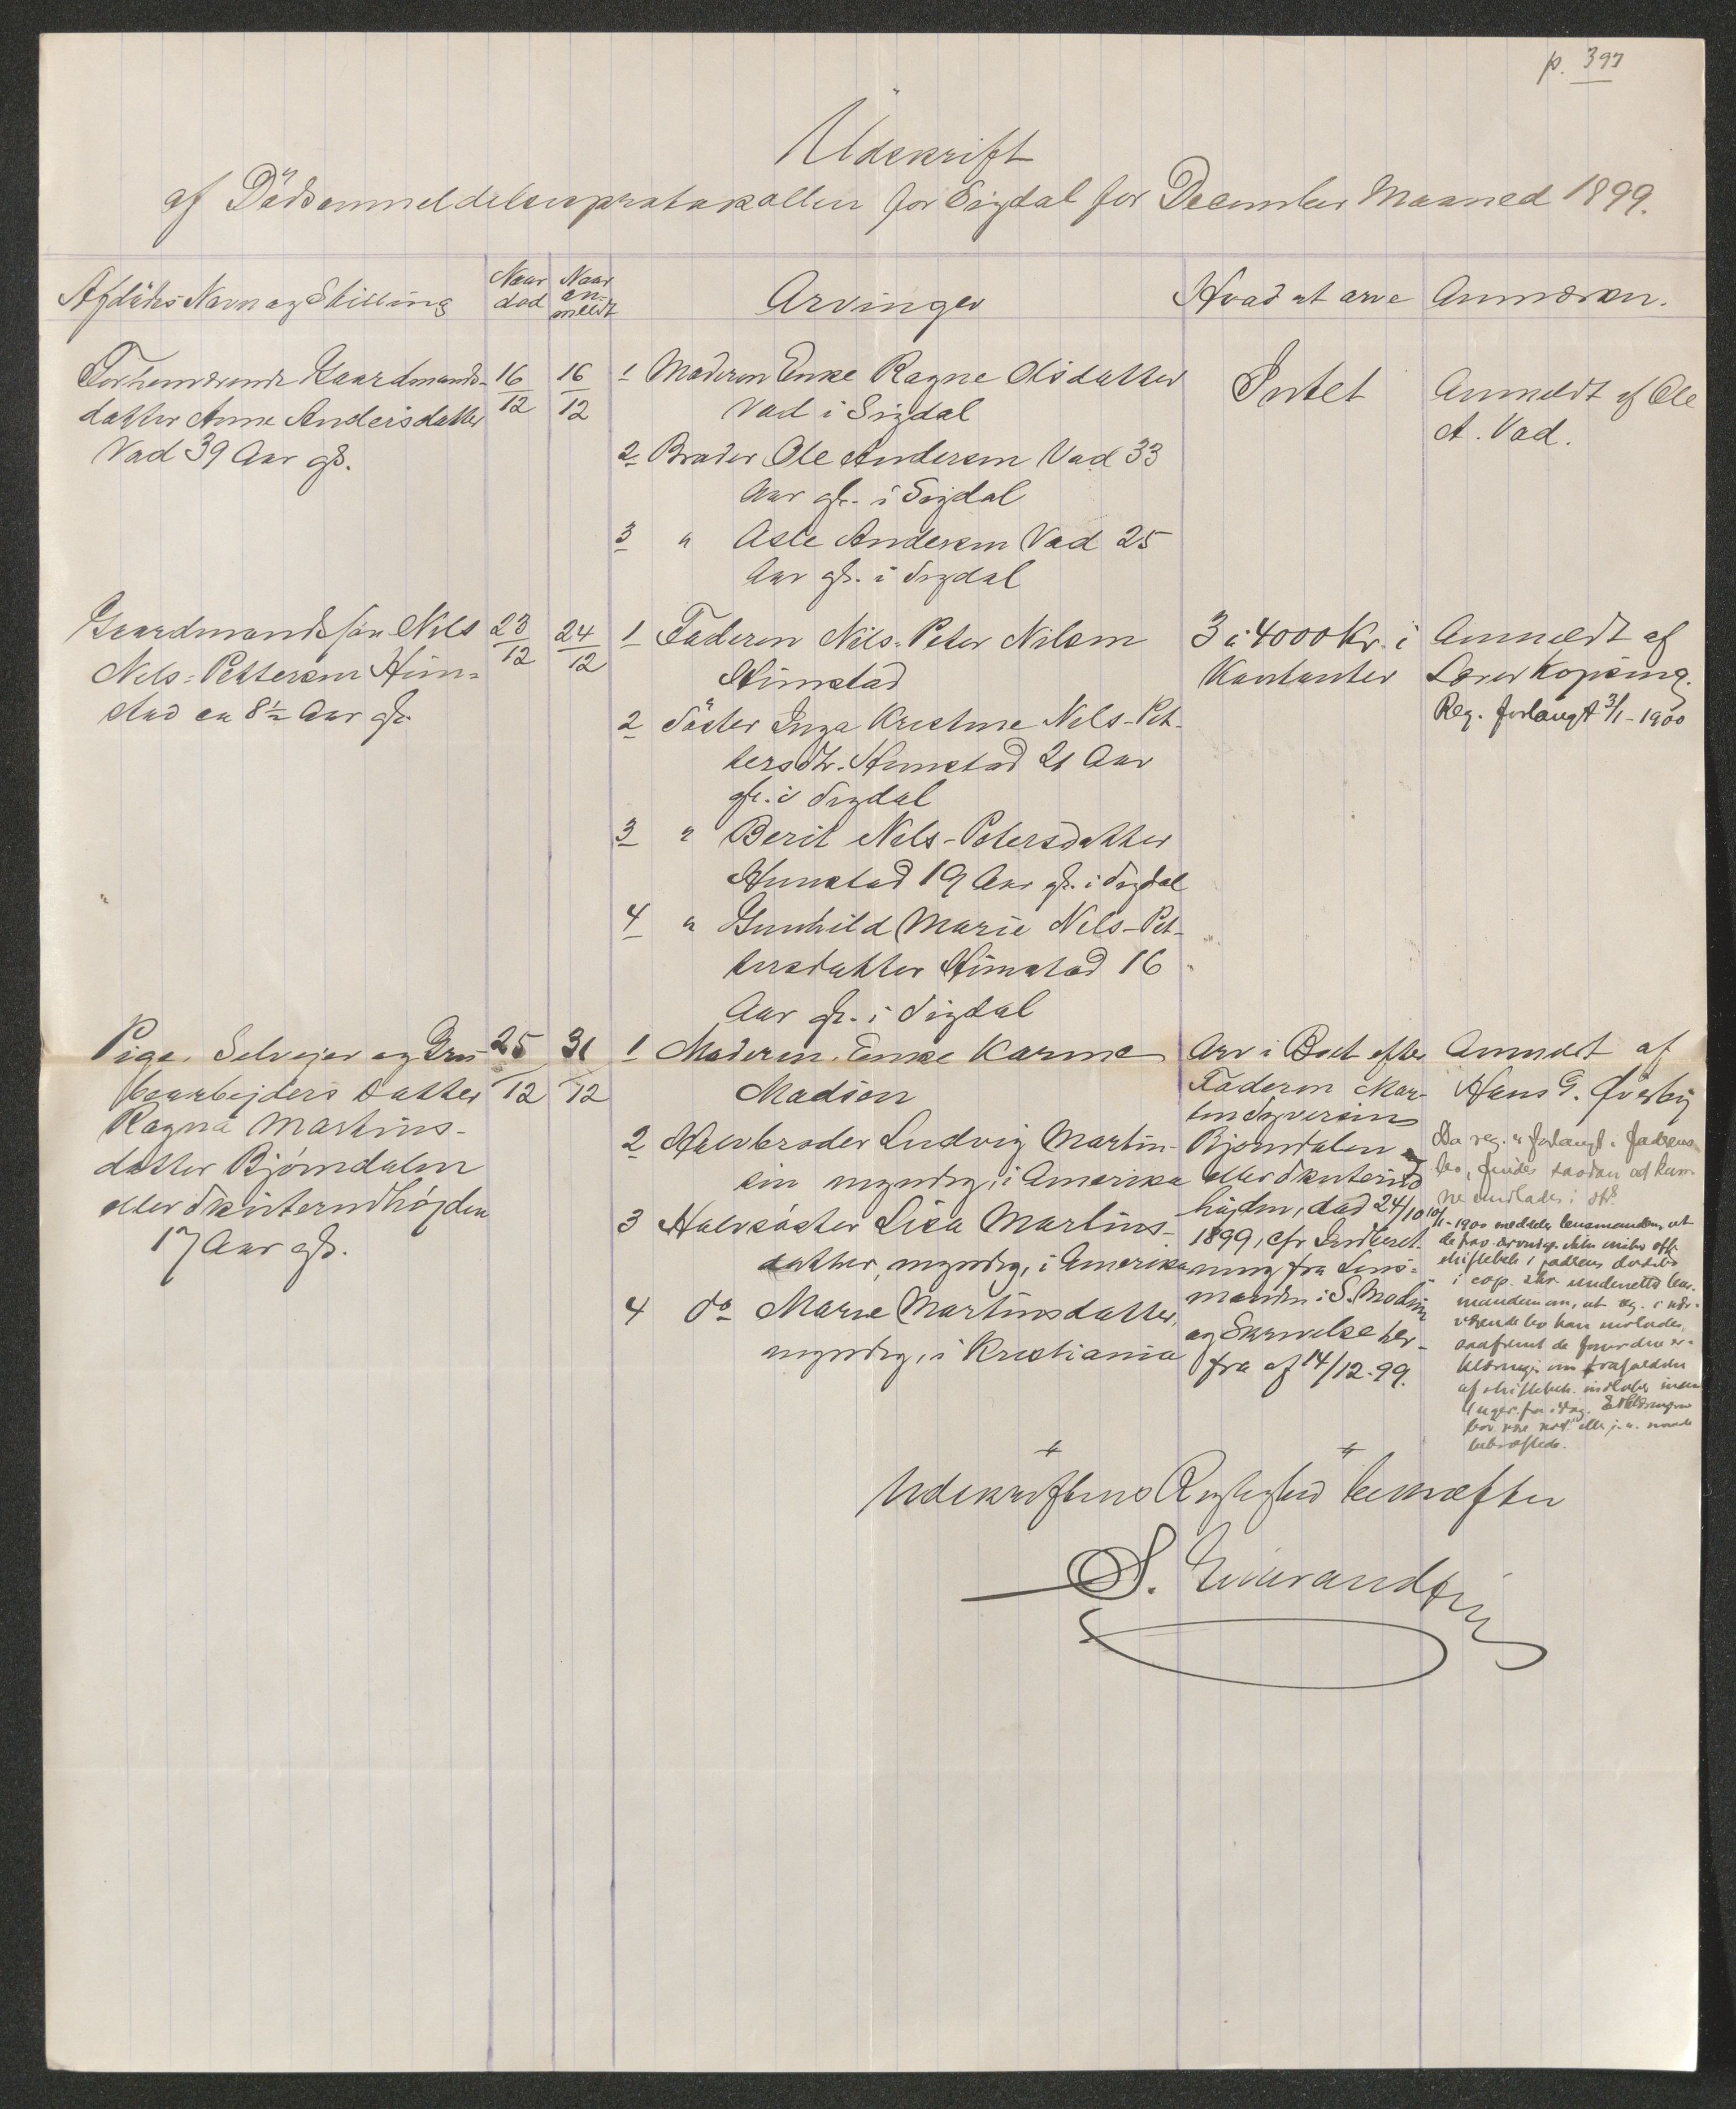 p. 397
Udskrift
af Dödsanmeldelsesprotokollen for Sigdal for December Maaned 1899.
Afdödes Navn og Stilling
Naar död
Naar an-
meldt
Arvinger
Hvad at arve
Anmærkn.
Forhenværende Gaardmands-
datter Anne Andersdatter
Vad 39 Aar gl.
16/12
16/12
1 Moderen Enke Ragne Olsdatter
Vad i Sigdal
2 Broder Ole Andersen Vad 33
Aar gl. i Sigdal
3 " Asle Andersen Vad 25
Aar gl. i Sigdal
Intet
Anmeldt af Ole
A. Vad.
Gaardmandssön Nils
Nils-Pettersen Him-
stad ca 8½ Aar gl.
23/12
24/12
1 Faderen Nils-Peter Nilsen
Himstad
2 Söster Inga Kristine Nils-Pet-
tersdtr. Himstad 21 Aar
gl. i Sigdal
3 " Berit Nils-Petersdatter
Himstad 19 Aar gl. i Sigdal
4 " Gunhild Marie Nils-Pet-
tersdatter Himstad 16
Aar gl. i Sigdal
3 à 4000 Kr. i
Kontanter
Anmeldt af
Lærer Kopseng.
Reg. forlangt 3/1-1900
Pige, Selveier og Gru-
bearbejders Datter
Ragna Martins-
datter Bjørndalen
eller Skuterudhöjden
17 Aar gl.
25/12
31/12
1 Moderen, Enke Karine
Madson
2 Halvbroder Ludvig Martin-
sen myndig, i Amerika
3 Halvsöster Lisa Martins-
datter, myndig, i Amerika
4 do Marie Martinsdatter,
myndig, i Kristiania
Arv i Boet efter
Faderen Mar-
tin Syversen
Bjørndalen
eller Skuterud
höjden, död 24/10
1899, cfr Indberet-
ning fra Lens-
manden i S. Modum
og Skrivelse her-
fra af 14/12-99.
Anmeldt af
Hans G. Øverby
Da reg. er forlangt i faderens
bo, findes saadan at kun-
ne undlades i
10/1-1900 meddeler lensmanden, at
skiftebeh. i faderens dødsbo
manden om, at reg. i nær-
værende bo kan undlades,
bekræftede.
Udskriftens Rigtighed bekræfter
S.